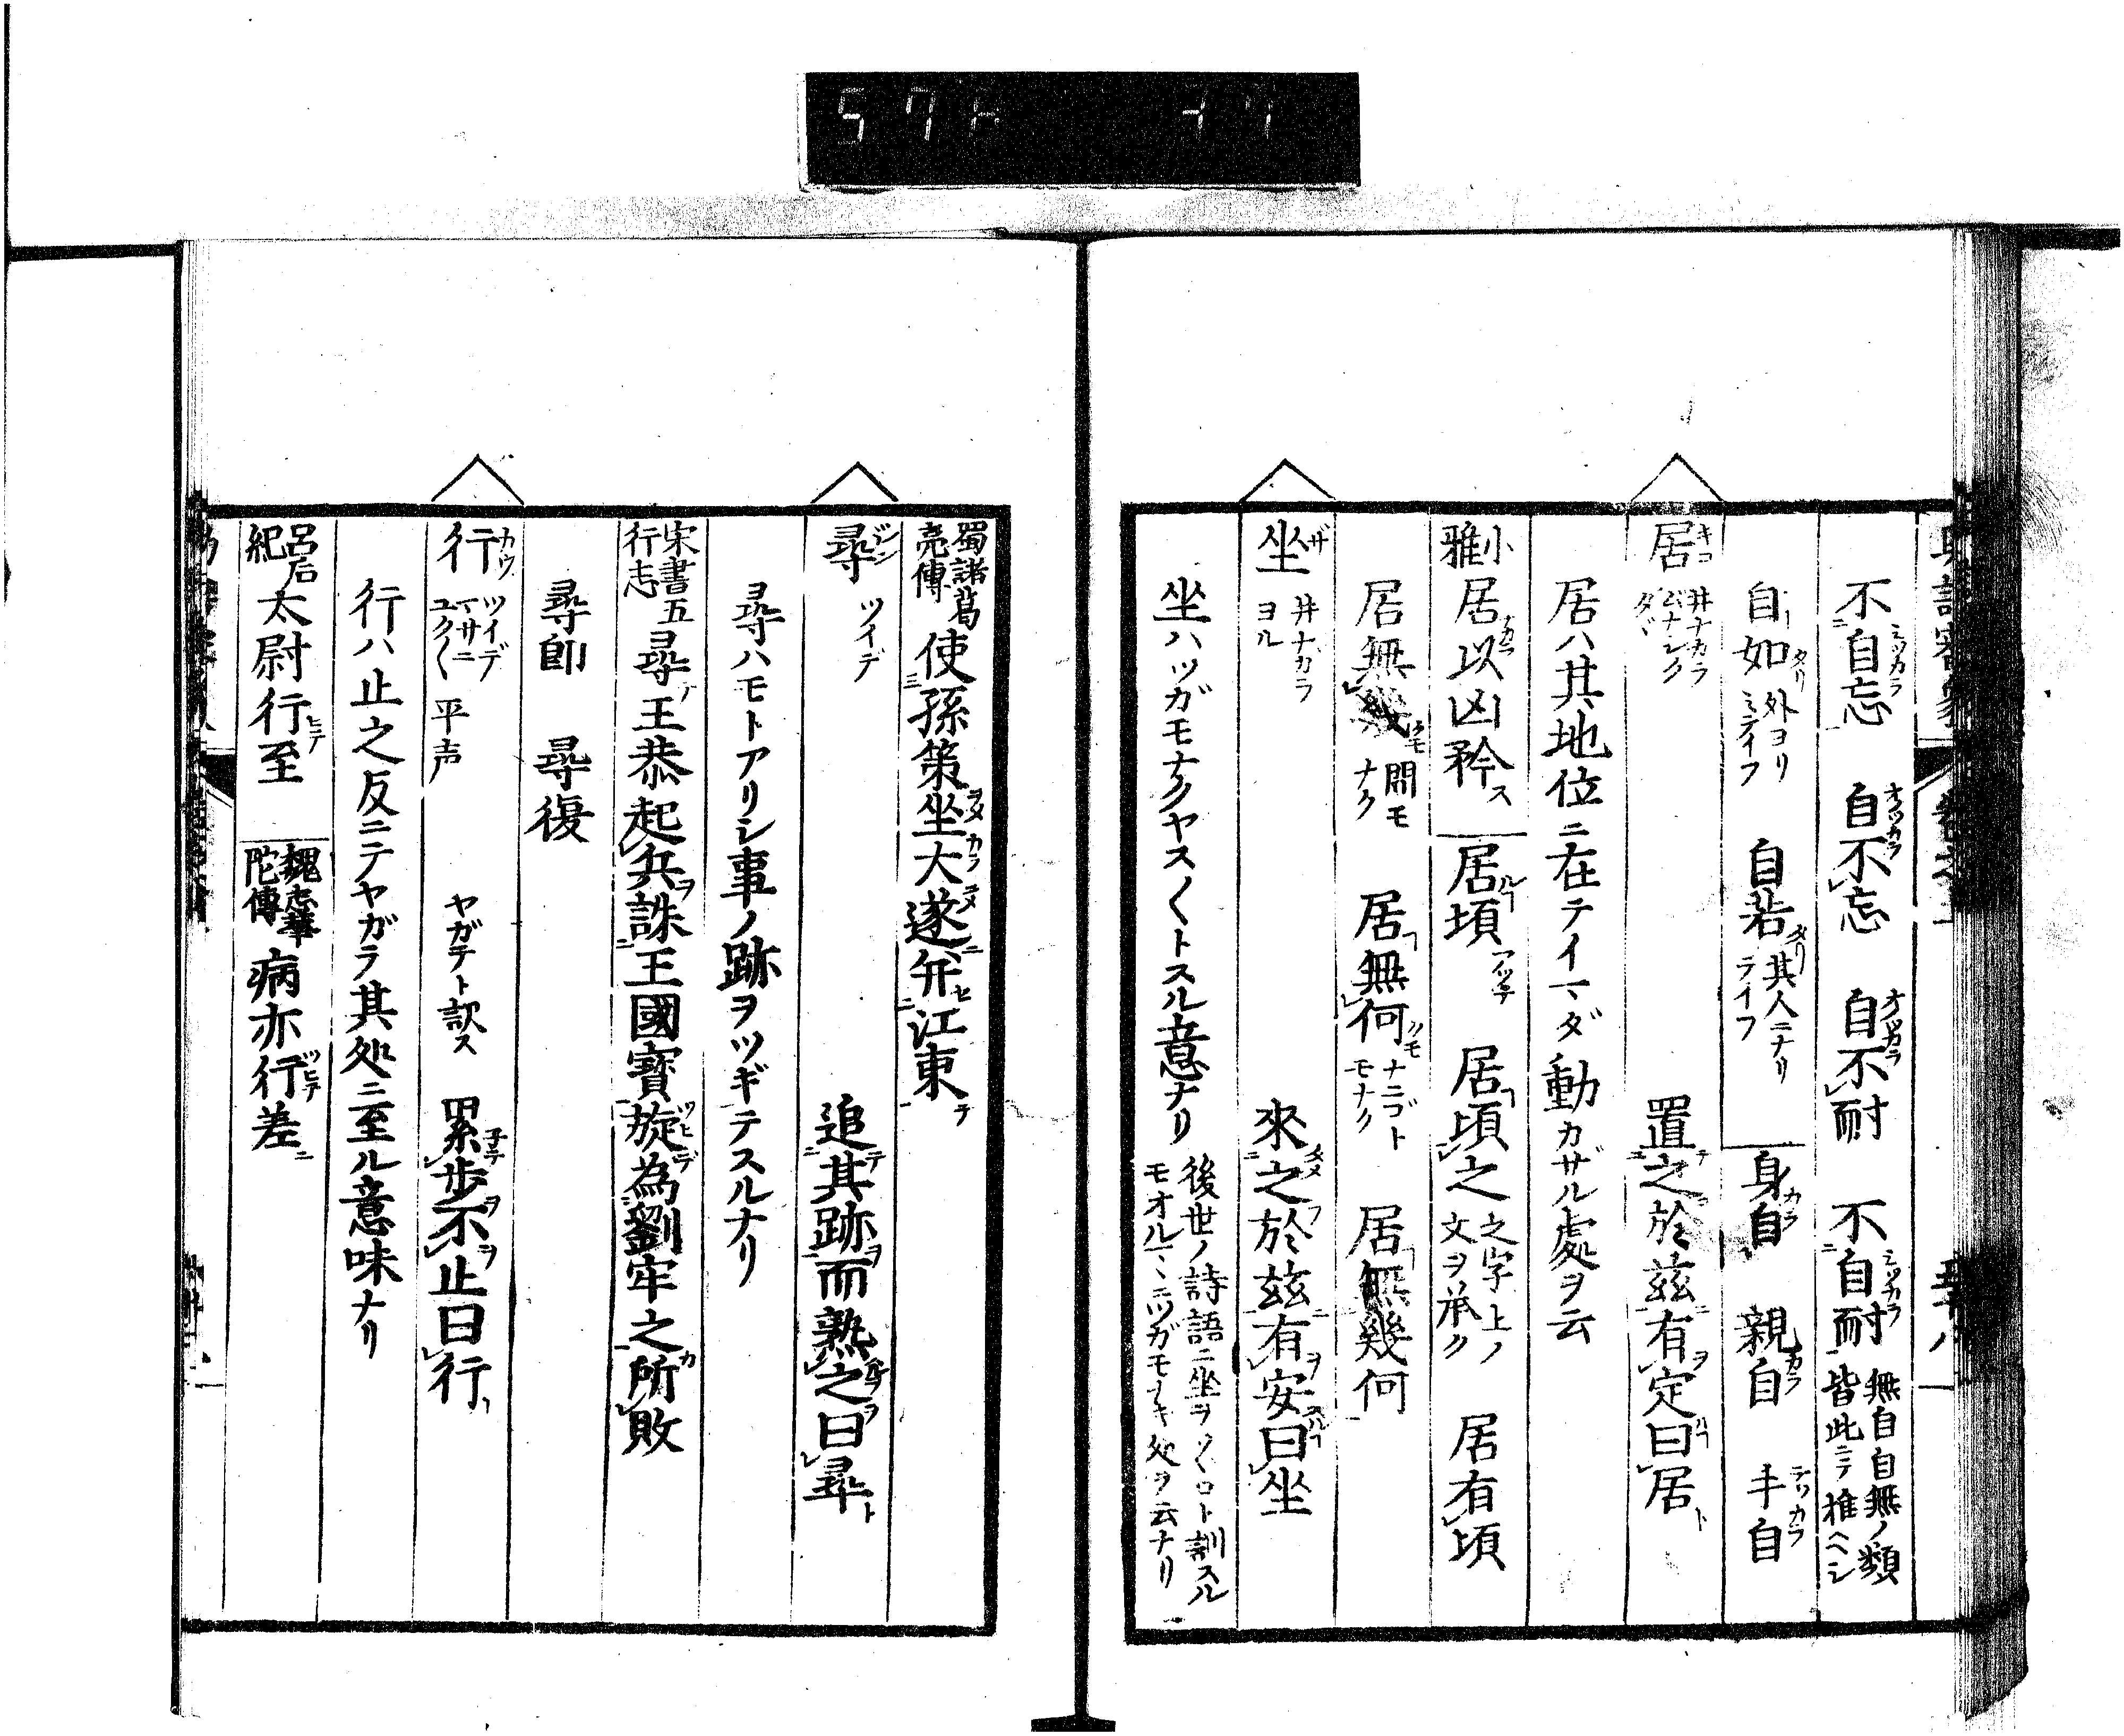 不自忘 自不忘 自不耐 不自耐 無自自無ノ類皆此ニテ推ヘシ
自如 外ヨリミテイフ 自若 其人ニナリテイフ 身自 親自 手自
居 キヨ 井ナカラ ムナシク タヾ 置之於茲有定曰居
居ハ其地位ニ在テイマダ動カザル處ヲ云
小雅 居以凶矜 居頃 居頃之 之字上ノ文ヲ承ク 居有頃
居無幾 間モナク 居無何 ナニゴトモナク 居無幾何
坐 ザ 井ナカラ ヨル 來之於茲有安曰坐
坐ハツガモナクヤス〱トスル意ナリ 後世ノ詩語ニ坐ヲソヾロト訓スルモオルマヽニツガモナキ処ヲ云ナリ
蜀諸葛亮傳 使孫策坐大遂并江東
尋 ジン ツイデ 追其跡而熟之曰尋
尋ハモトアリシ事ノ跡ヲツギテスルナリ
宋書五行志 尋王恭起兵誅王國寶旋為劉牢之所敗
尋即 尋復
行 カウ ツイデ マサニ ユク〱 平声 ヤガテト訳ス 累歩不止曰行
行ハ止之反ニテヤガラ其処ニ至ル意味ナリ
呂后紀 太尉行至 魏志華陀傳 病亦行差